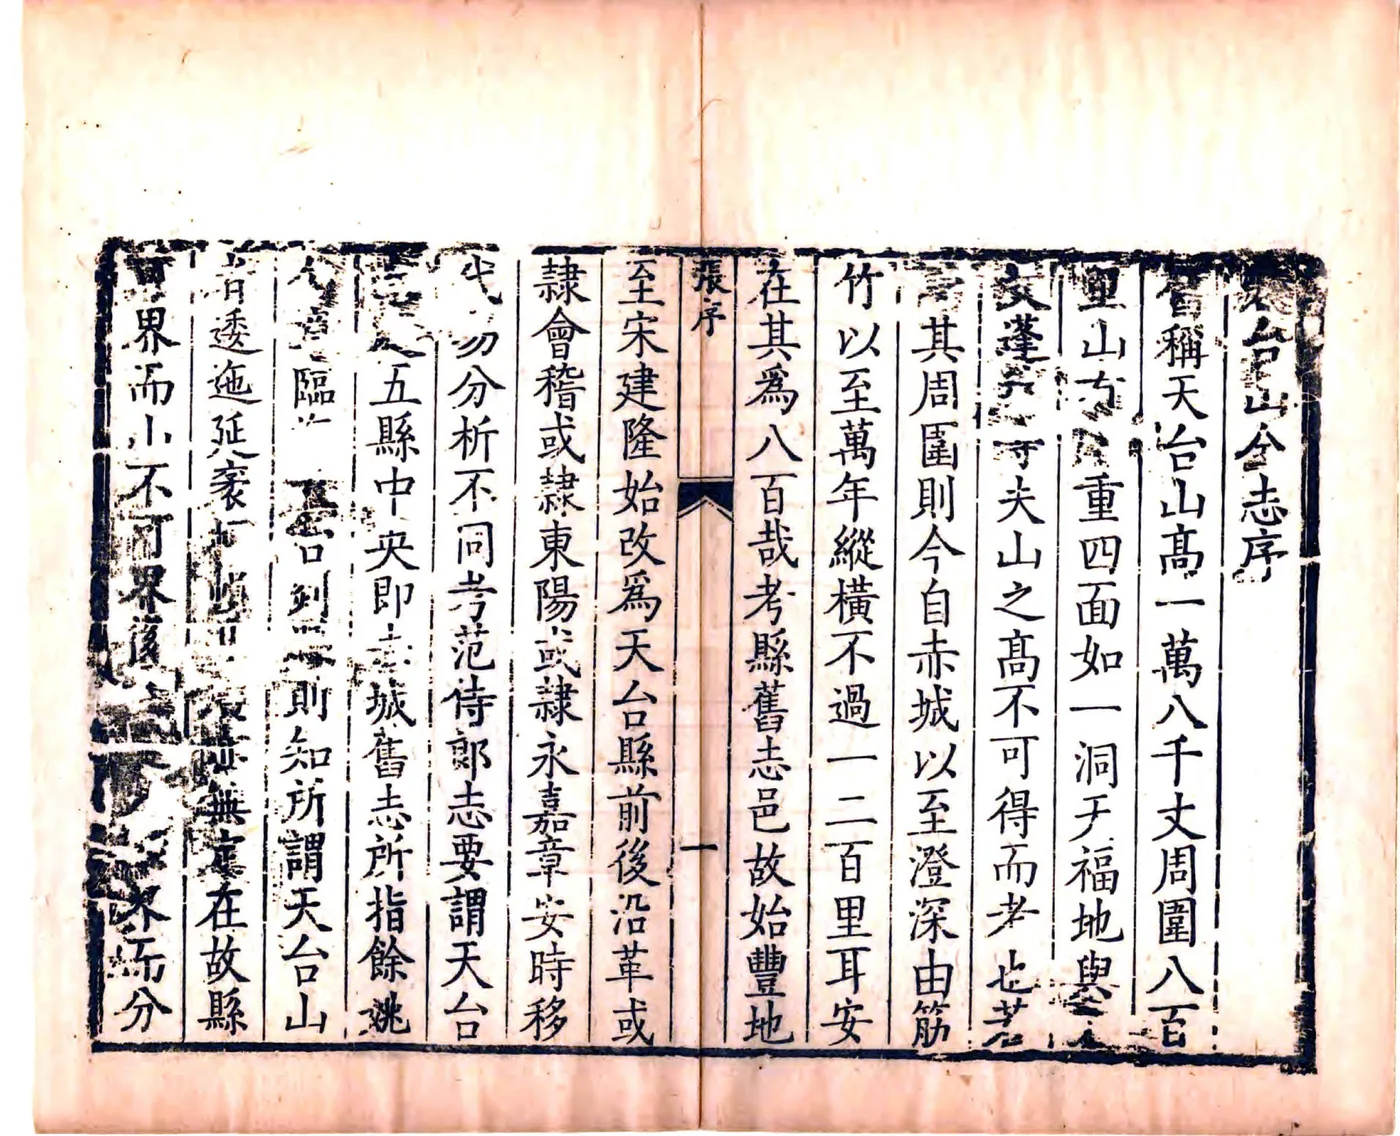 天台山全志序
昔稱天台山高一萬八千丈周圍八百
里山有重四面如一洞天福地與
文蓬夫山之高不可得而考也若
言其周圍則今自赤城以至澄深由筋
竹以至萬年縱橫不過一二百里耳安
在其爲八百哉考縣舊志邑故始豐地
張序
一
至宋建隆始改爲天台縣前後沿革或
隸會稽或隸東陽或隸永嘉章安時移
代易分析不同考范侍郎志要謂天台
五縣中央即赤城舊志所指餘姚
臨台剡則知所謂天台山
者逶迤延袤無定在故縣
界而小不可界後界而分